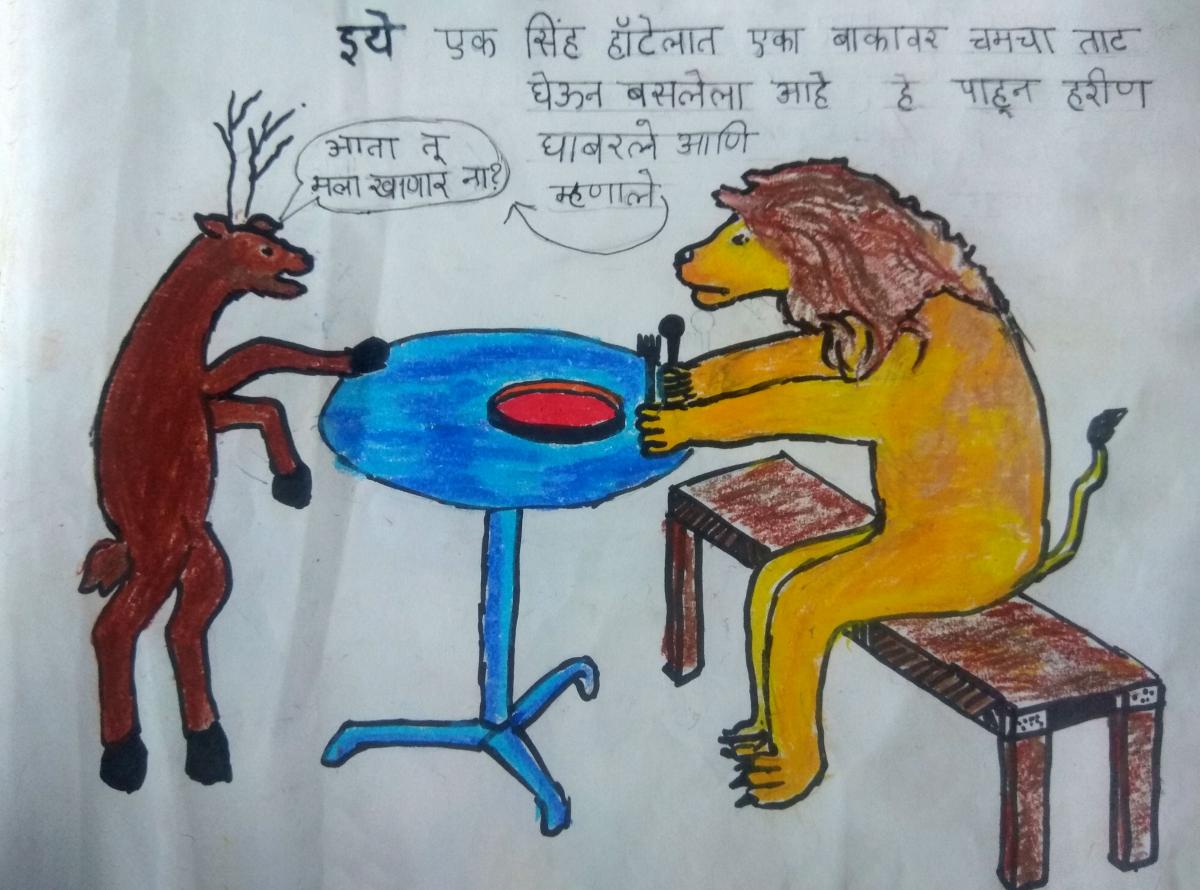 इये एक सिंह हॉटेलात एका बाकावर चमचा ताट
घेऊन बसलेला आहे हे पाहून हरीण
घाबरले आणि
म्हणाले
आता तू
मला खाणार ना?